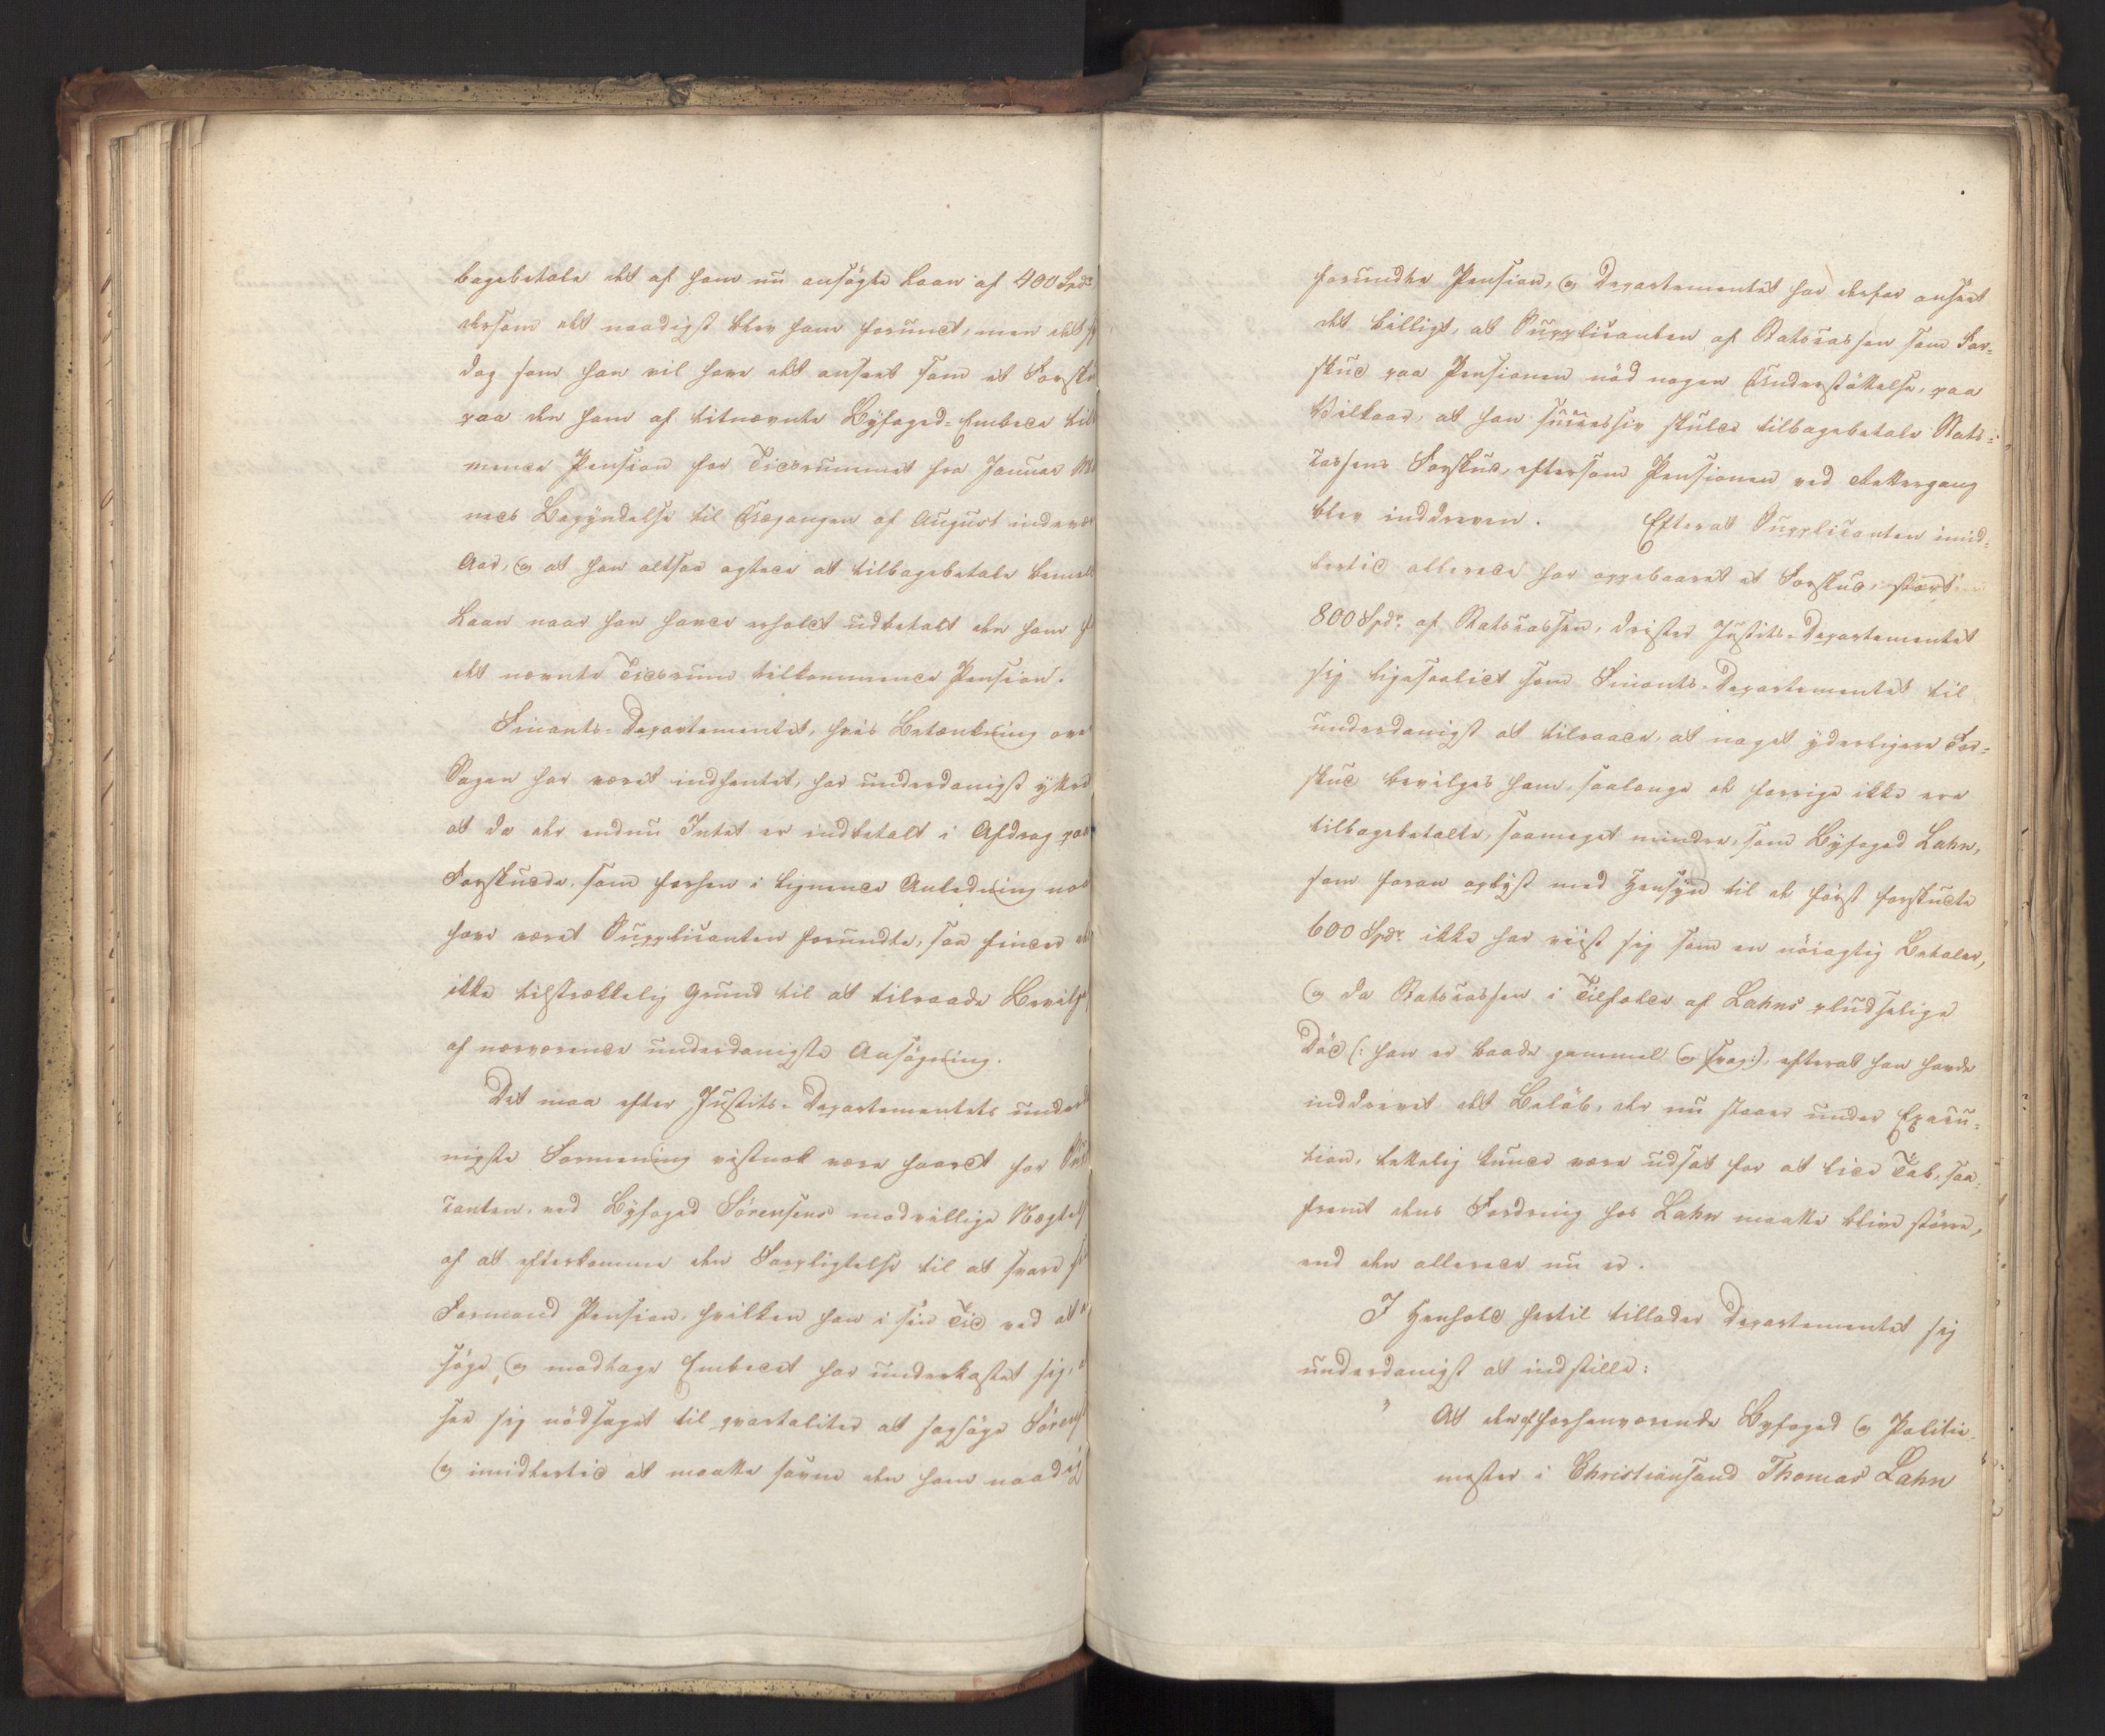 bagebetale det af ham nu ansøgte Laan af 400 Spdr,
dersom det naadigst blev ham forundt, men det
dog som han vil have det anseet som et Forsku
paa den ham af bemeldte Byfoged-Embede tilkom-
mende Pension for Tidsrummet fra Januar Maa-
neds Begyndelse til Udgangen af August indevær
Aar, og at han altsaa agtede at tilbagebetale bemeldt
Laan naar han havde erholdt udbetalt den ham f
det nævnte Tidsrum tilkommende Pension.
Finants-Departementet, hvis Betænkning over
Sagen har været indhentet, har underdanigst yttret
at da der endnu Intet er indbetalt i Afdrag paa
Forskudde, som forhen i lignende Anledning
have været Supplicanten forundte, saa findes
ikke tilstrækkelig Grund til at tilraade Bevilg
af nærværende underdanigste Ansøgning.
Det maa efter Justits-Departementets underda-
nigste Formening vistnok være haardt for Suppli-
canten, ved Byfoged Sörensens modvillige Nægtelse
af at efterkomme den Forpligtelse til at svare
Formand Pension, hvilken han i sin Tid ved at
søge og modtage Embedet har underkastet sig,
see sig nödsaget til qvartaliter at sagsøge Sörensen
og imidlertid at maatte savne den ham naadigst
forundte Pension, og Departementet har derfor anseet
det billigt, at Supplicanten af Statscassen som For-
skud paa Pensionen nöd nogen Understöttelse, paa
Vilkaar, at han successiv skulde tilbagebetale Stats-
cassens Forskud, eftersom Pensionen ved Rettergang
blev inddreven. Efterat Supplicanten imid-
lertid allerede har oppebaaret et Forskud, stort
800 Spdr. af Statscassen, drister Justits-Departementet
sig ligesaalidt som Finants-Departementet til
underdanigst at tilraade, at noget yderligere For-
skud bevilges ham, saalænge de forrige ikke ere
tilbagebetalte, saameget mindre, som Byfoged Lahn,
som foran oplyst med Hensyn til de först forskudte
600 Spdr. ikke har viist sig som en nöiagtig Betaler,
og da Statscassen i Tilfælde af Lahns pludselige
Död (: han er baade gammel og svag:), efterat han havde
inddrevet det Belöb, der nu staaer under Execu-
tion, lettelig kunde være udsat for at lide Tab, saa-
fremt dens Fordring hos Lahn maatte blive större,
end den allerede nu er.
I Henhold hertil tillader Departementet sig
underdanigst at indstille:
" At den af forhenværende Byfoged og Politie-
mester i Christiansand Thomas Lahn